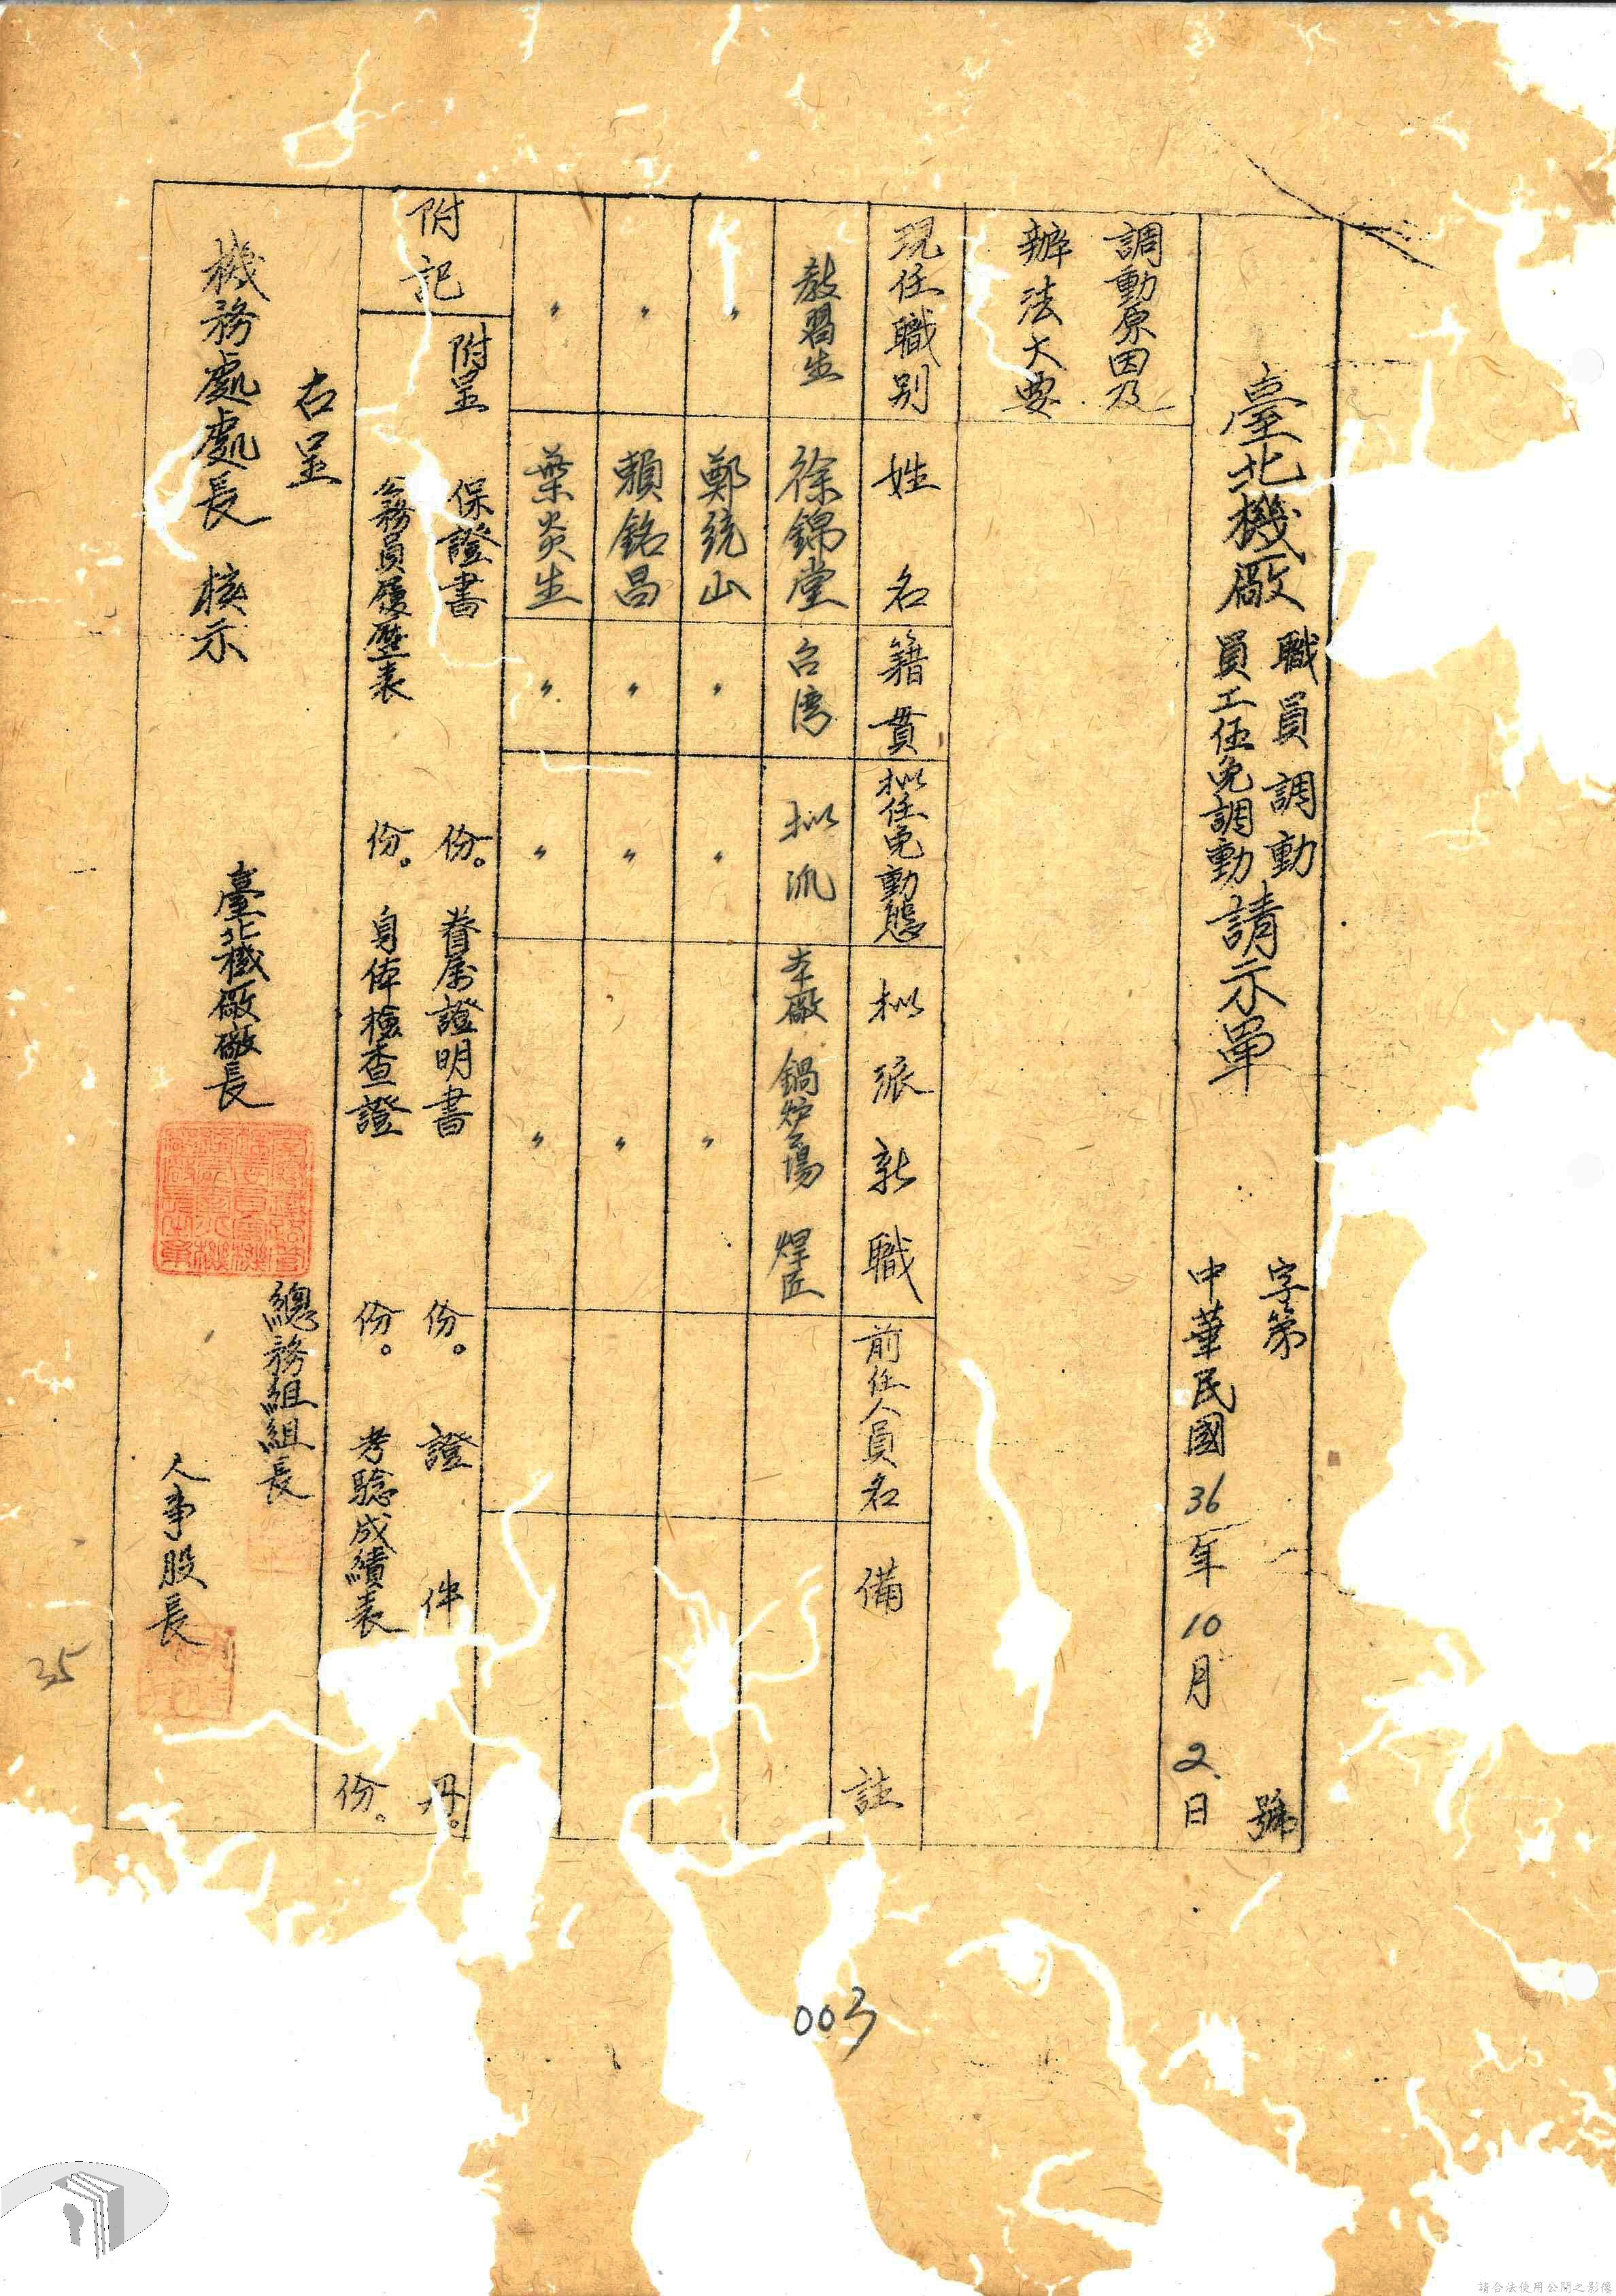 臺北機廠 職員調動 員工任免調動 請示單
字第 號
中華民國36年10月2日
調動原因及
辦法大要
現任職別 姓名 籍貫 拟任免動態 拟派新職 前任人員名 備註
教習生 徐錦堂 台湾 拟派 本廠 鍋炉工場 焊匠
〃 鄭統山 〃 〃 〃
〃 賴銘昌 〃 〃 〃
〃 葉炎生 〃 〃 〃
附記
附呈 保證書 份。 眷属證明書 份。 證件 册。
公務員履歷表 份。 身体檢查證 份。 考驗成績表 份。
右呈
機務處處長 核示
臺北機廠廠長
總務組組長
人事股長
35
003
請合法使用公開之影像